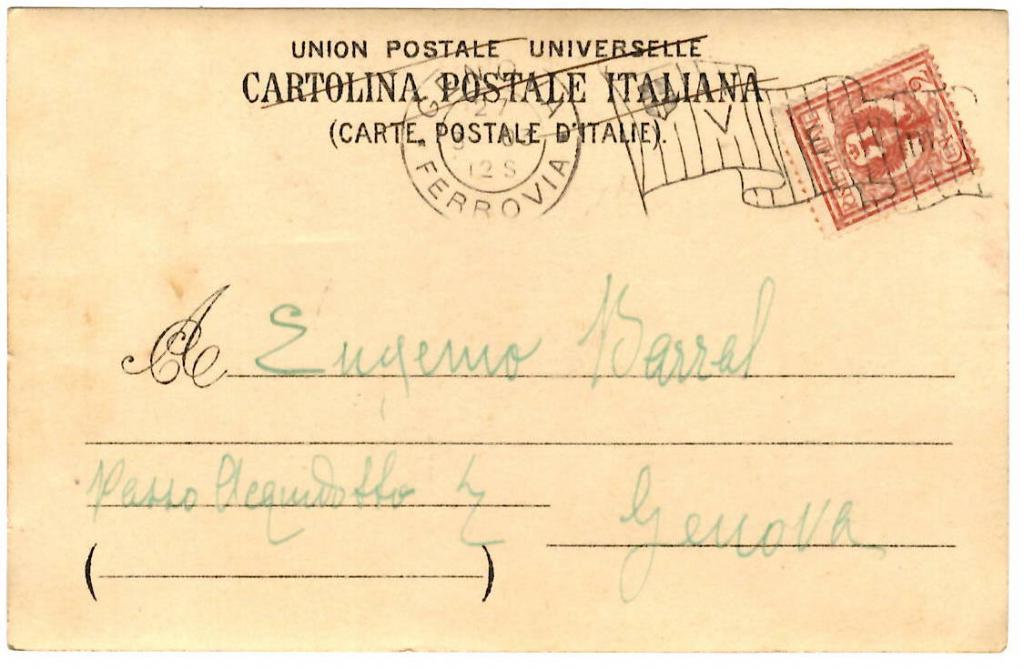 UNION POSTALE UNIVERSELLE
CARTOLINA POSTALE ITALIANA
(CARTE POSTALE D'ITALIE).
GENOVA
12 S
FERROVIA
V E
A Eugenio Barral
Passo Acquidotto
Genova